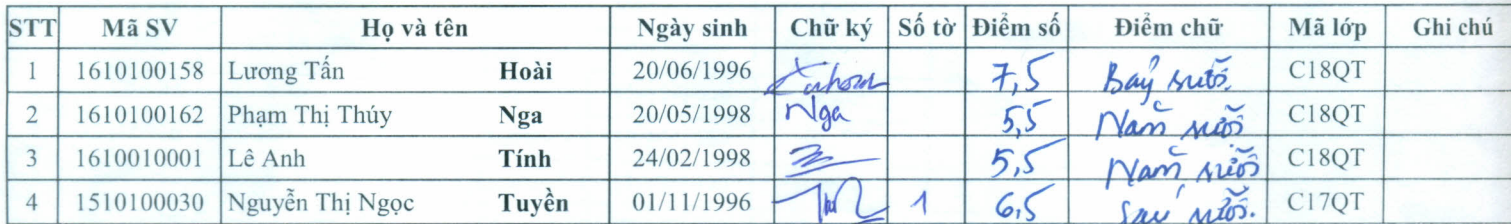 STT Mã SV Họ và tên Ngày sinh Chữ ký Số tờ Điểm số Điểm chữ Mã lớp Ghi chú
1 1610100158 Lương Tấn Hoài 20/06/1996 7,5 Bảy rưỡi. C18QT
2 1610100162 Phạm Thị Thúy Nga 20/05/1998 Nga 5,5 Năm rưỡi C18QT
3 1610010001 Lê Anh Tính 24/02/1998 5,5 Năm rưỡi C18QT
4 1510100030 Nguyễn Thị Ngọc Tuyền 01/11/1996 1 6,5 Sáu rưỡi. C17QT